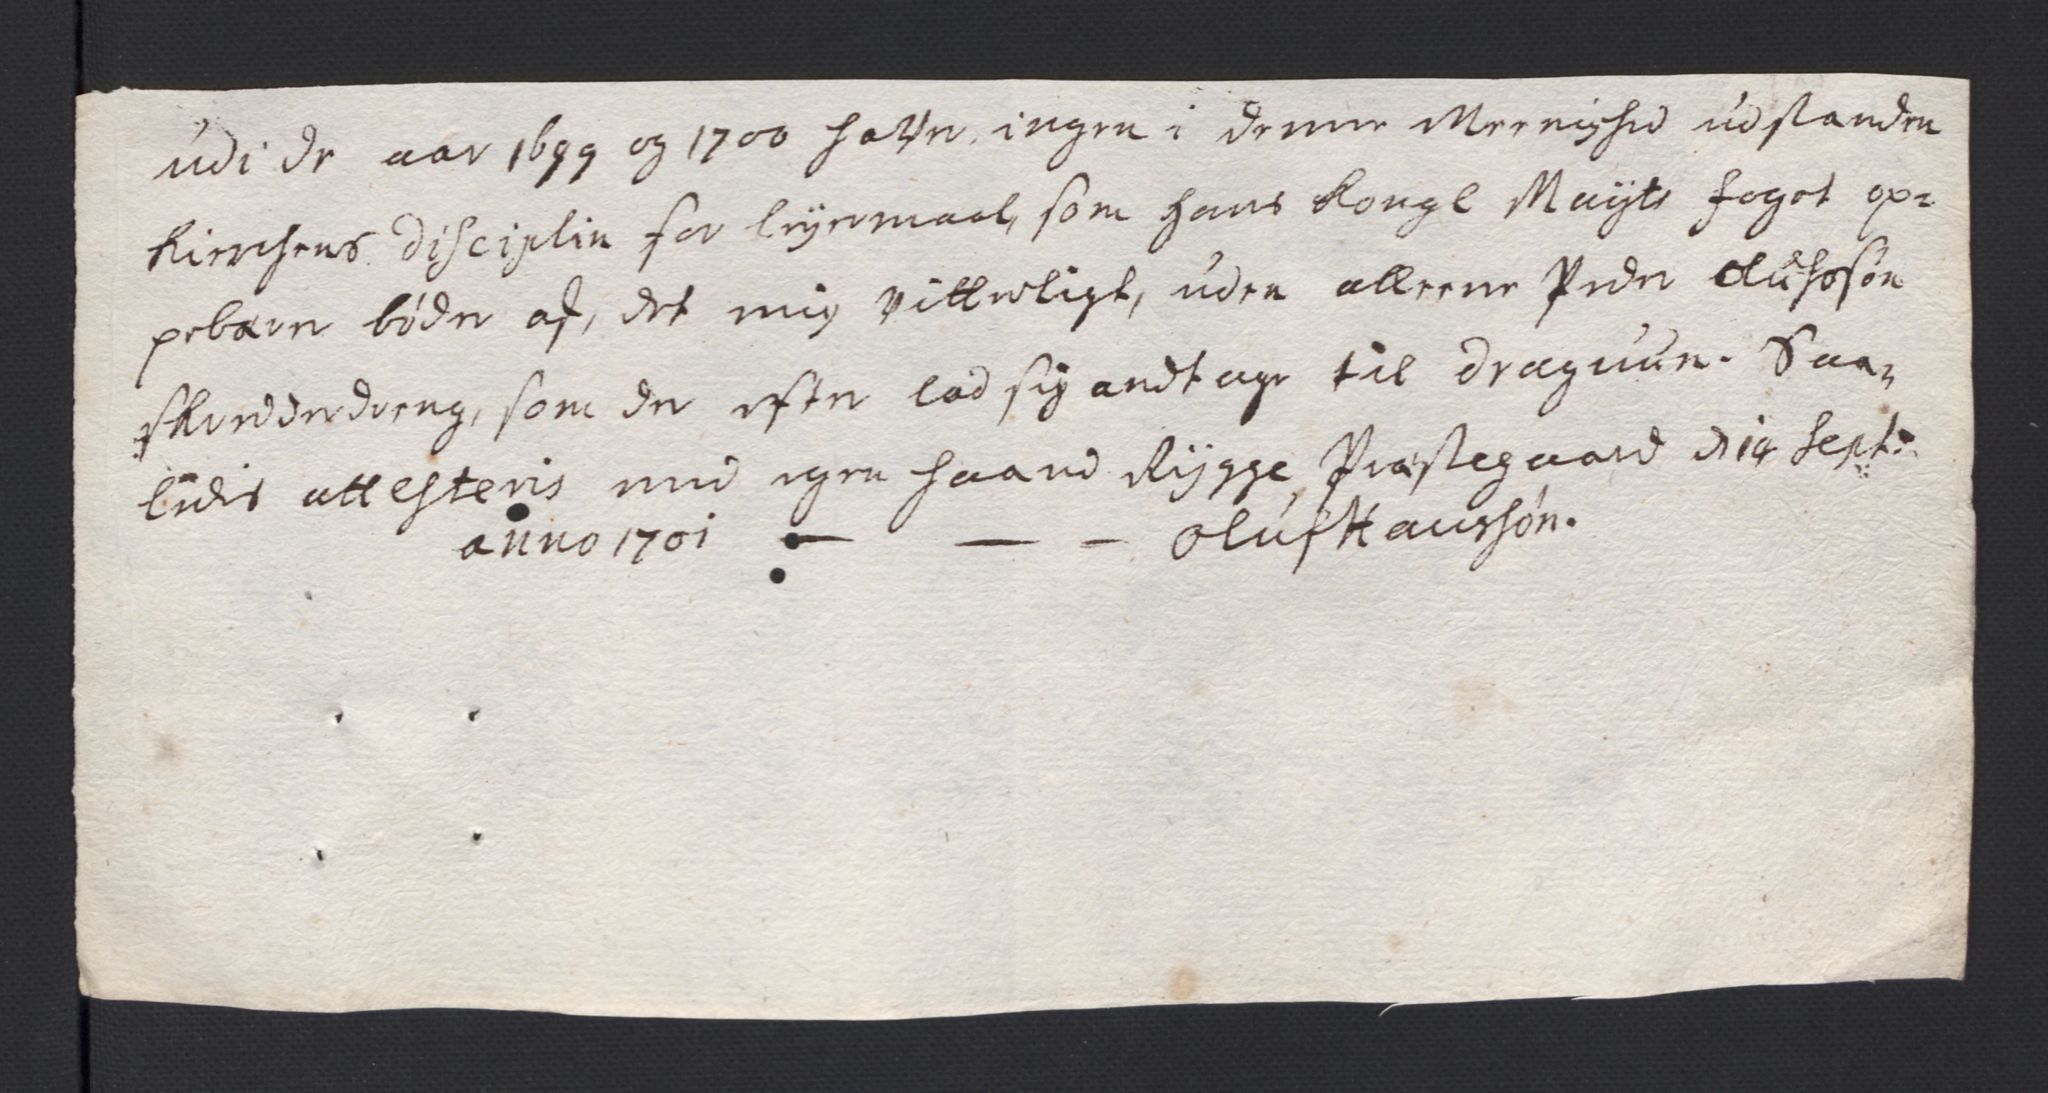 udi de aar 1699 og 1700 hafver ingen i denne Meenighed udstanden
Kierchens disciplin for leyermaal, som hans Kongl Mayts foget op=
pebærer bøder af, det mig vitterligt, uden alleene Peder Olufsøn
skredderdreng, som der efter lod sig andtage til draguun. Saa=
ledis attesteris med egen haand Rygge Præstegaard d 14 Sept:
anno 1701 — — — Oluf Hanssøn.